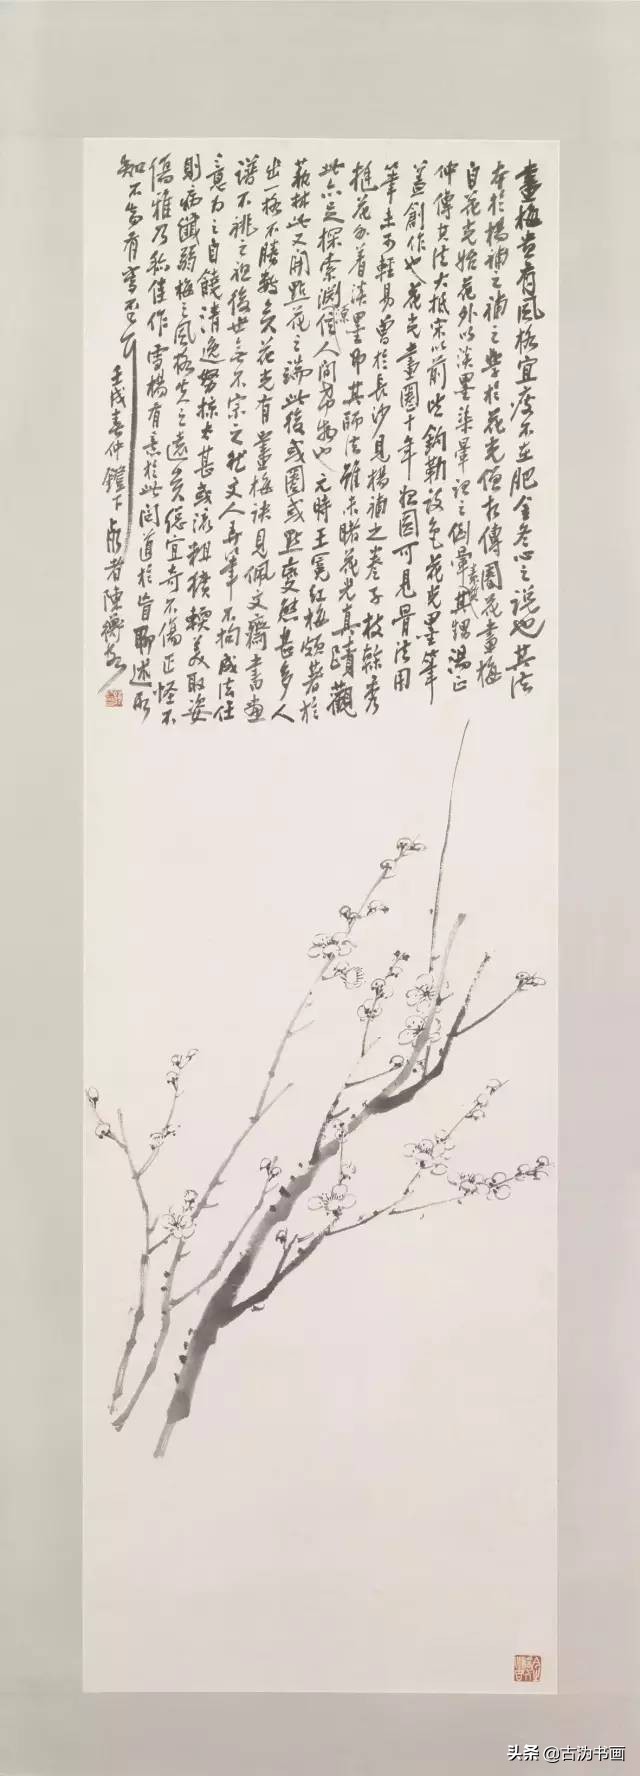 畫梅貴有風格宜瘦不在肥金冬心之說也其法
本於楊補之補之學於花光僧古傳圈花畫梅
自花光始花外以淡墨染暈謂之倒暈素質其甥湯正
仲傳其法大抵宋以前皆鈎勒設色花光墨筆
蓋創作也花光畫圈十年固可見骨法用
筆未可輕易曾於長沙見楊補之卷子枝幹秀
挺花外着淡墨即其師法雖未睹花光真蹟觀
此亦足探索淵源信人間希物也元時王冕紅梅頗著於
藝林此又開點花之端此後或圈或點變態甚多人
出一格不勝數矣花光有畫梅訣見佩文齋書畫
譜不祧之祖後世無不宗之然文人弄筆不拘成法任
意為之自饒清逸努掠太甚或流粗獷輭美取姿
則病纖弱梅之風格失之遠矣總宜奇不傷正怪不
傷雅乃稱佳作雪楊有意於此問道於盲聊述所
知不為有當否
壬戌春仲下者陳衡恪
头条 @古沩书画